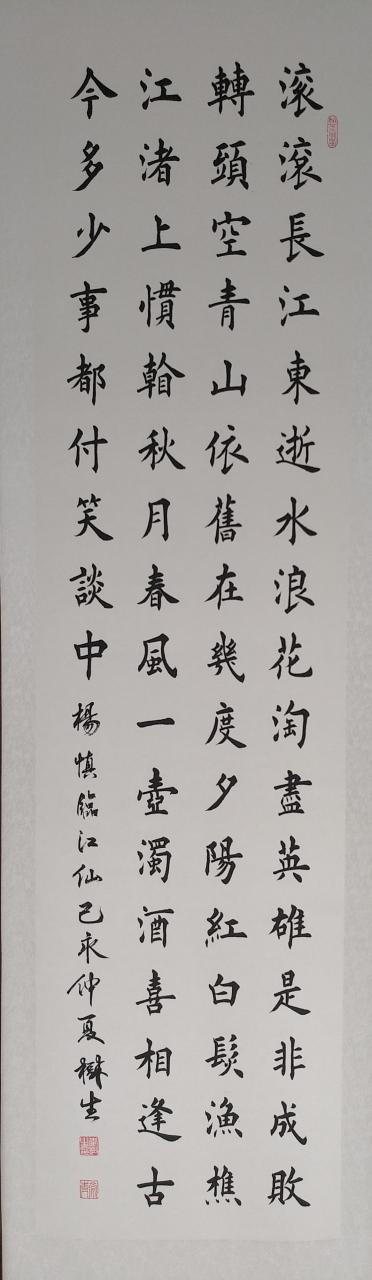 滚滚長江東逝水浪花淘盡英雄是非成敗
轉頭空青山依舊在幾度夕陽紅白髮漁樵
江渚上慣看秋月春風一壺濁酒喜相逢古
今多少事都付笑談中楊慎臨江仙己亥仲夏生